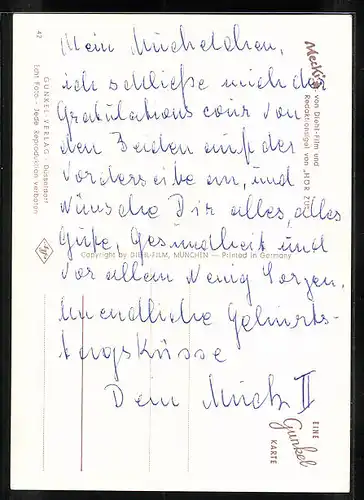 Mein Muckelchen,
ich schließe mich der
Gratulations cour von
den Beiden auf der
Vorderseite an, und
wünsche Dir alles, alles
Gute, Gesundheit und
vor allem wenig Sorgen.
Unendliche Geburts-
tagsküsse
Dein Muck II
Mecki
von Diehl-Film und
Redaktionsigel von „HÖR ZU"
Copyright by DIEHL-FILM, MÜNCHEN — Printed in Germany
42
GUNKEL-VERLAG · Düsseldorf
Echt Foto · Jede Reproduktion verboten
EINE
Gunkel
KARTE